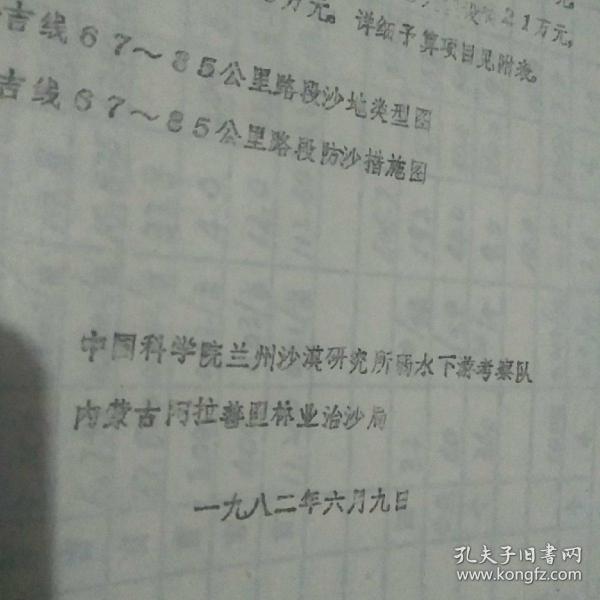 21万元,
万元。详细予算项目见附表。
吉线67~85公里路段沙地类型图
吉线67~85公里路段防沙措施图
中国科学院兰州沙漠研究所弱水下游考察队
内蒙古阿拉善盟林业治沙局
一九八二年六月九日
孔夫子旧书网
www.kongfz.com